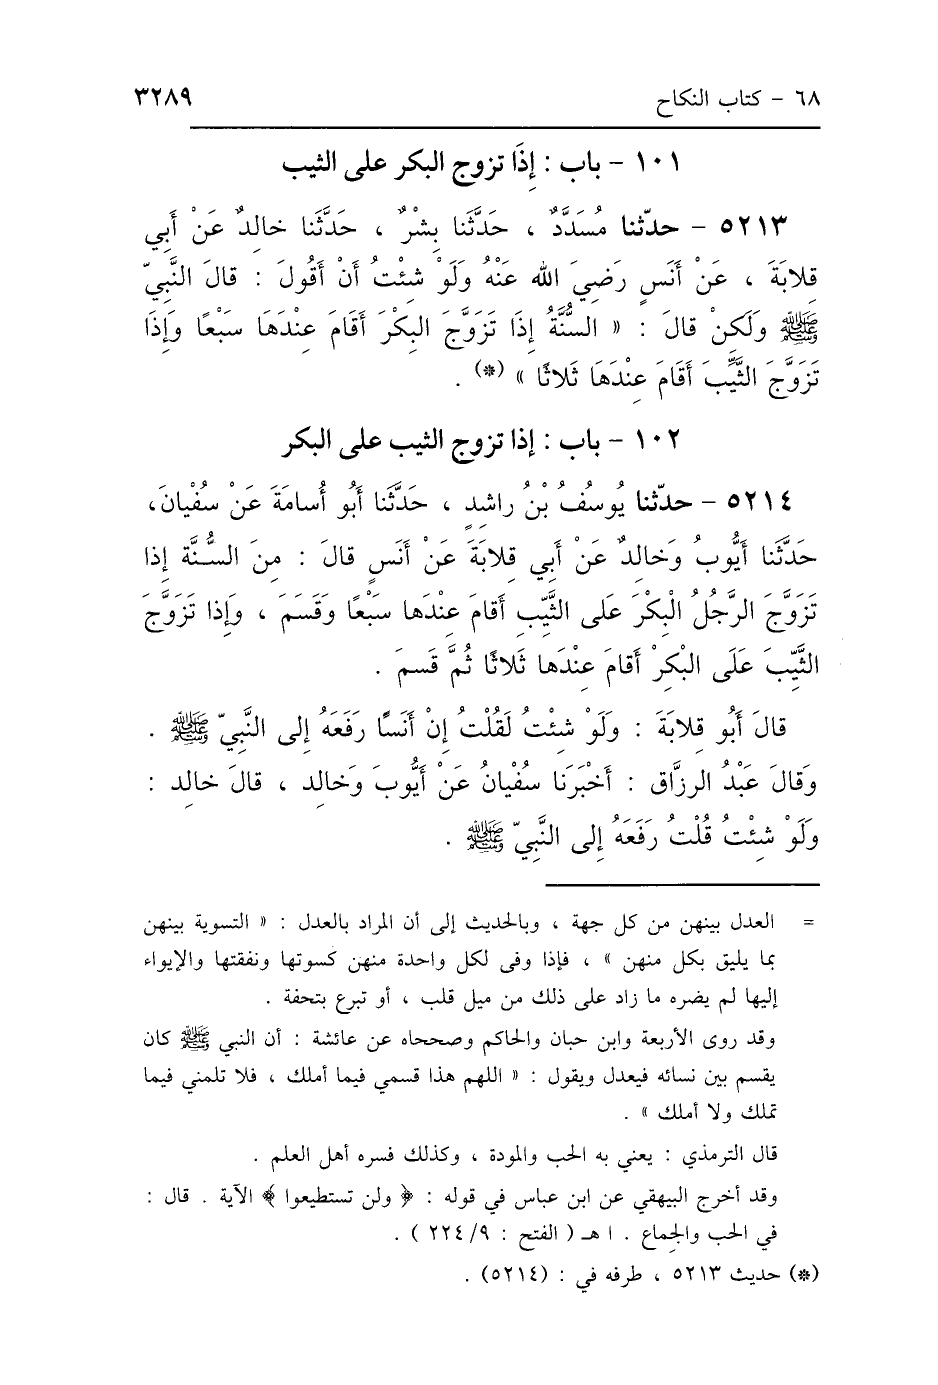 ٦٨ - كتاب النكاح ٣٢٨٩
١٠١ - باب : إِذَا تزوج البكر على الثيب
٥٢١٣ - حدّثنا مُسَدَّدٌ ، حَدَّثَنا بِشْرٌ ، حَدَّثَنا خالِدٌ عَنْ أَبِي
قِلابَةَ ، عَنْ أَنَسٍ رَضِيَ الله عَنْهُ وَلَوْ شِئْتُ أَنْ أَقُولَ : قالَ النَّبِيّ
ﷺ وَلَكِنْ قالَ : « السُّنَّةُ إِذَا تَزَوَّجَ البِكْرَ أَقَامَ عِنْدَهَا سَبْعًا وَإِذَا
تَزَوَّجَ الثَّيِّبَ أَقَامَ عِنْدَهَا ثَلاثًا » (*) .
١٠٢ - باب : إذا تزوج الثيب على البكر
٥٢١٤ - حدّثنا يُوسُفُ بْنُ راشِدٍ ، حَدَّثَنا أَبُو أُسامَةَ عَنْ سُفْيانَ،
حَدَّثَنا أَيُّوبُ وَخالِدٌ عَنْ أَبِي قِلابَةَ عَنْ أَنَسٍ قالَ : مِنَ السُّنَّة إِذا
تَزَوَّجَ الرَّجُلُ الْبِكْرَ عَلى الثَّيِّبِ أَقامَ عِنْدَها سَبْعًا وَقَسَمَ ، وَإِذا تَزَوَّجَ
الثَّيِّبَ عَلَى الْبِكْرِ أَقامَ عِنْدَها ثَلاثًا ثُمَّ قَسمَ .
قالَ أَبُو قِلابَةَ : وَلَوْ شِئْتُ لَقُلْتُ إِنْ أَنَسًا رَفَعَهُ إِلى النَّبِيّ ﷺ .
وَقالَ عَبْدُ الرزَّاقِ : أَخْبَرَنا سُفْيانُ عَنْ أَيُّوبَ وَخالِد ، قالَ خالِد :
وَلَوْ شِئْتُ قُلْتُ رَفَعَهُ إِلى النَّبِيّ ﷺ .
= العدل بينهن من كل جهة ، وبالحديث إلى أن المراد بالعدل : « التسوية بينهن
بما يليق بكل منهن » ، فإذا وفى لكل واحدة منهن كسوتها ونفقتها والإيواء
إليها لم يضره ما زاد على ذلك من ميل قلب ، أو تبرع بتحفة .
وقد روى الأربعة وابن حبان والحاكم وصححاه عن عائشة : أن النبي ﷺ كان
يقسم بين نسائه فيعدل ويقول : « اللهم هذا قسمي فيما أملك ، فلا تلمني فيما
تملك ولا أملك » .
قال الترمذي : يعني به الحب والمودة ، وكذلك فسره أهل العلم .
وقد أخرج البيهقي عن ابن عباس في قوله : ﴿ ولن تستطيعوا ﴾ الآية . قال :
في الحب والجماع . ا هـ ( الفتح : ٩/ ٢٢٤ ) .
(*) حديث ٥٢١٣ ، طرفه في : (٥٢١٤) .